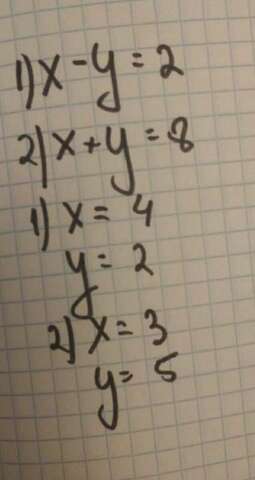 1) x - y = 2
2) x + y = 8
1) x = 4
y = 2
2) x = 3
y = 5